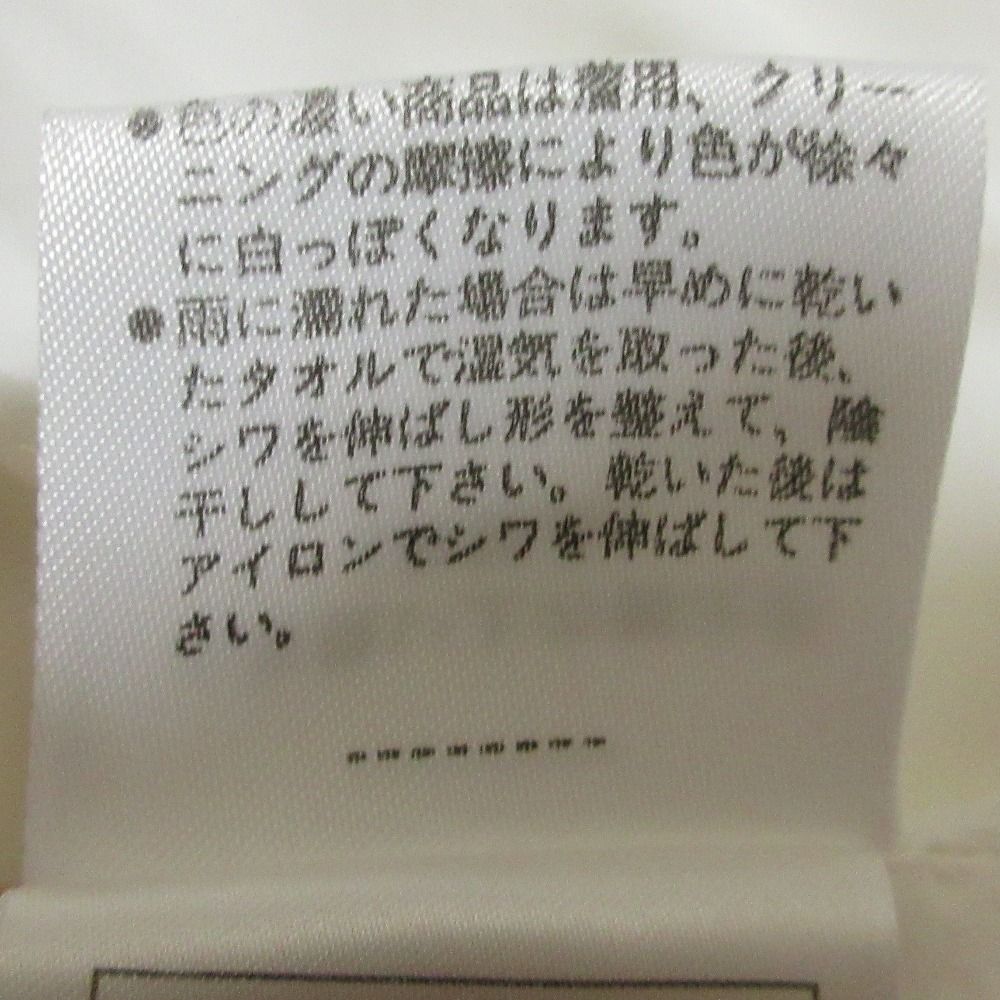 ●色の濃い商品は着用、クリー
ニングの摩擦により色が徐々
に白っぽくなります。
●雨に濡れた場合は早めに乾い
たタオルで湿気を取った後、
シワを伸ばし形を整えて、陰
干しして下さい。乾いた後は
アイロンでシワを伸ばして下
さい。